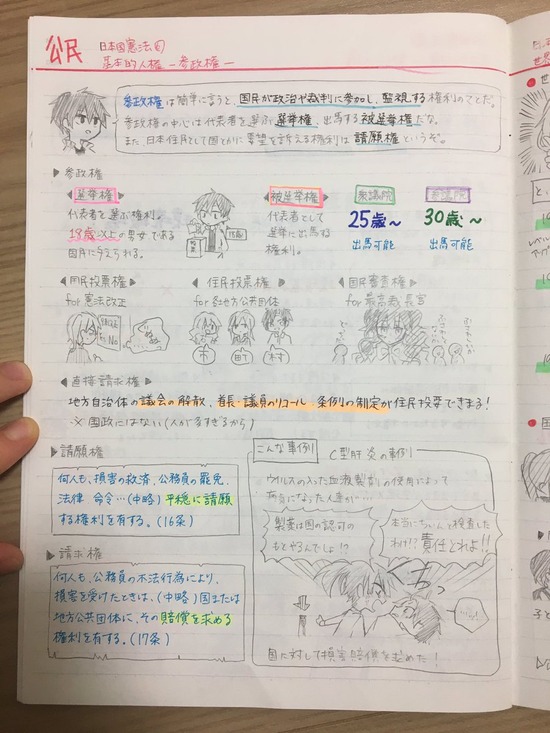 公民
日本国憲法
基本的人権 -参政権-
参政権は簡単に言うと、国民が政治や裁判に参加し、監視する権利のことだ。
参政権の中心は代表者を選ぶ選挙権、出馬する被選挙権だな。
また、日本住民として国とかに要望を訴える権利は請願権というぞ。
▶参政権
選挙権
代表者を選ぶ権利。
18歳以上の男女である
国民に与えられる。
被選挙権
代表者として
選挙に出馬する
権利。
衆議院
25歳〜
出馬可能
参議院
30歳〜
出馬可能
国民投票権
for 憲法改正
No
住民投票権
for 各地方公共団体
市
町
村
国民審査権
for 最高裁長官
直接請求権
地方自治体の議会の解散、首長・議員のリコール、条例の制定が住民投票できる!
※国政にはない(人が多すぎるから)
▶請願権
何人も、損害の救済、公務員の罷免、
法律 命令…(中略)平穏に請願
する権利を有する。(16条)
▶請求権
何人も、公務員の不法行為により、
損害を受けたときは、(中略)国または
地方公共団体に、その賠償を求める
権利を有する。(17条)
こんな事例
C型肝炎の事例
ウイルスの入った血液製剤の使用によって
病気になった人達が…
製薬は国の認可の
もとやるんでしょ!?
本当にちゃんと検査した
わけ!?責任とれよ!!
国に対して損害賠償を求めた!